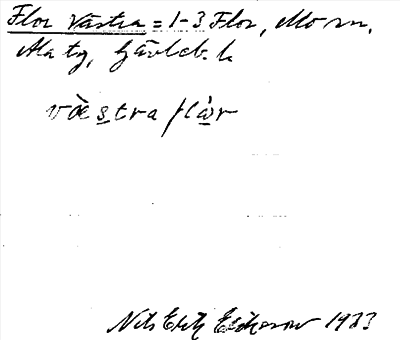 Flor Västra = 1-3 Flor, Mo sn,
Ala tg, Gävleb. l.
vœ̀stra flὼr
Nils Erik Eliasson 1933